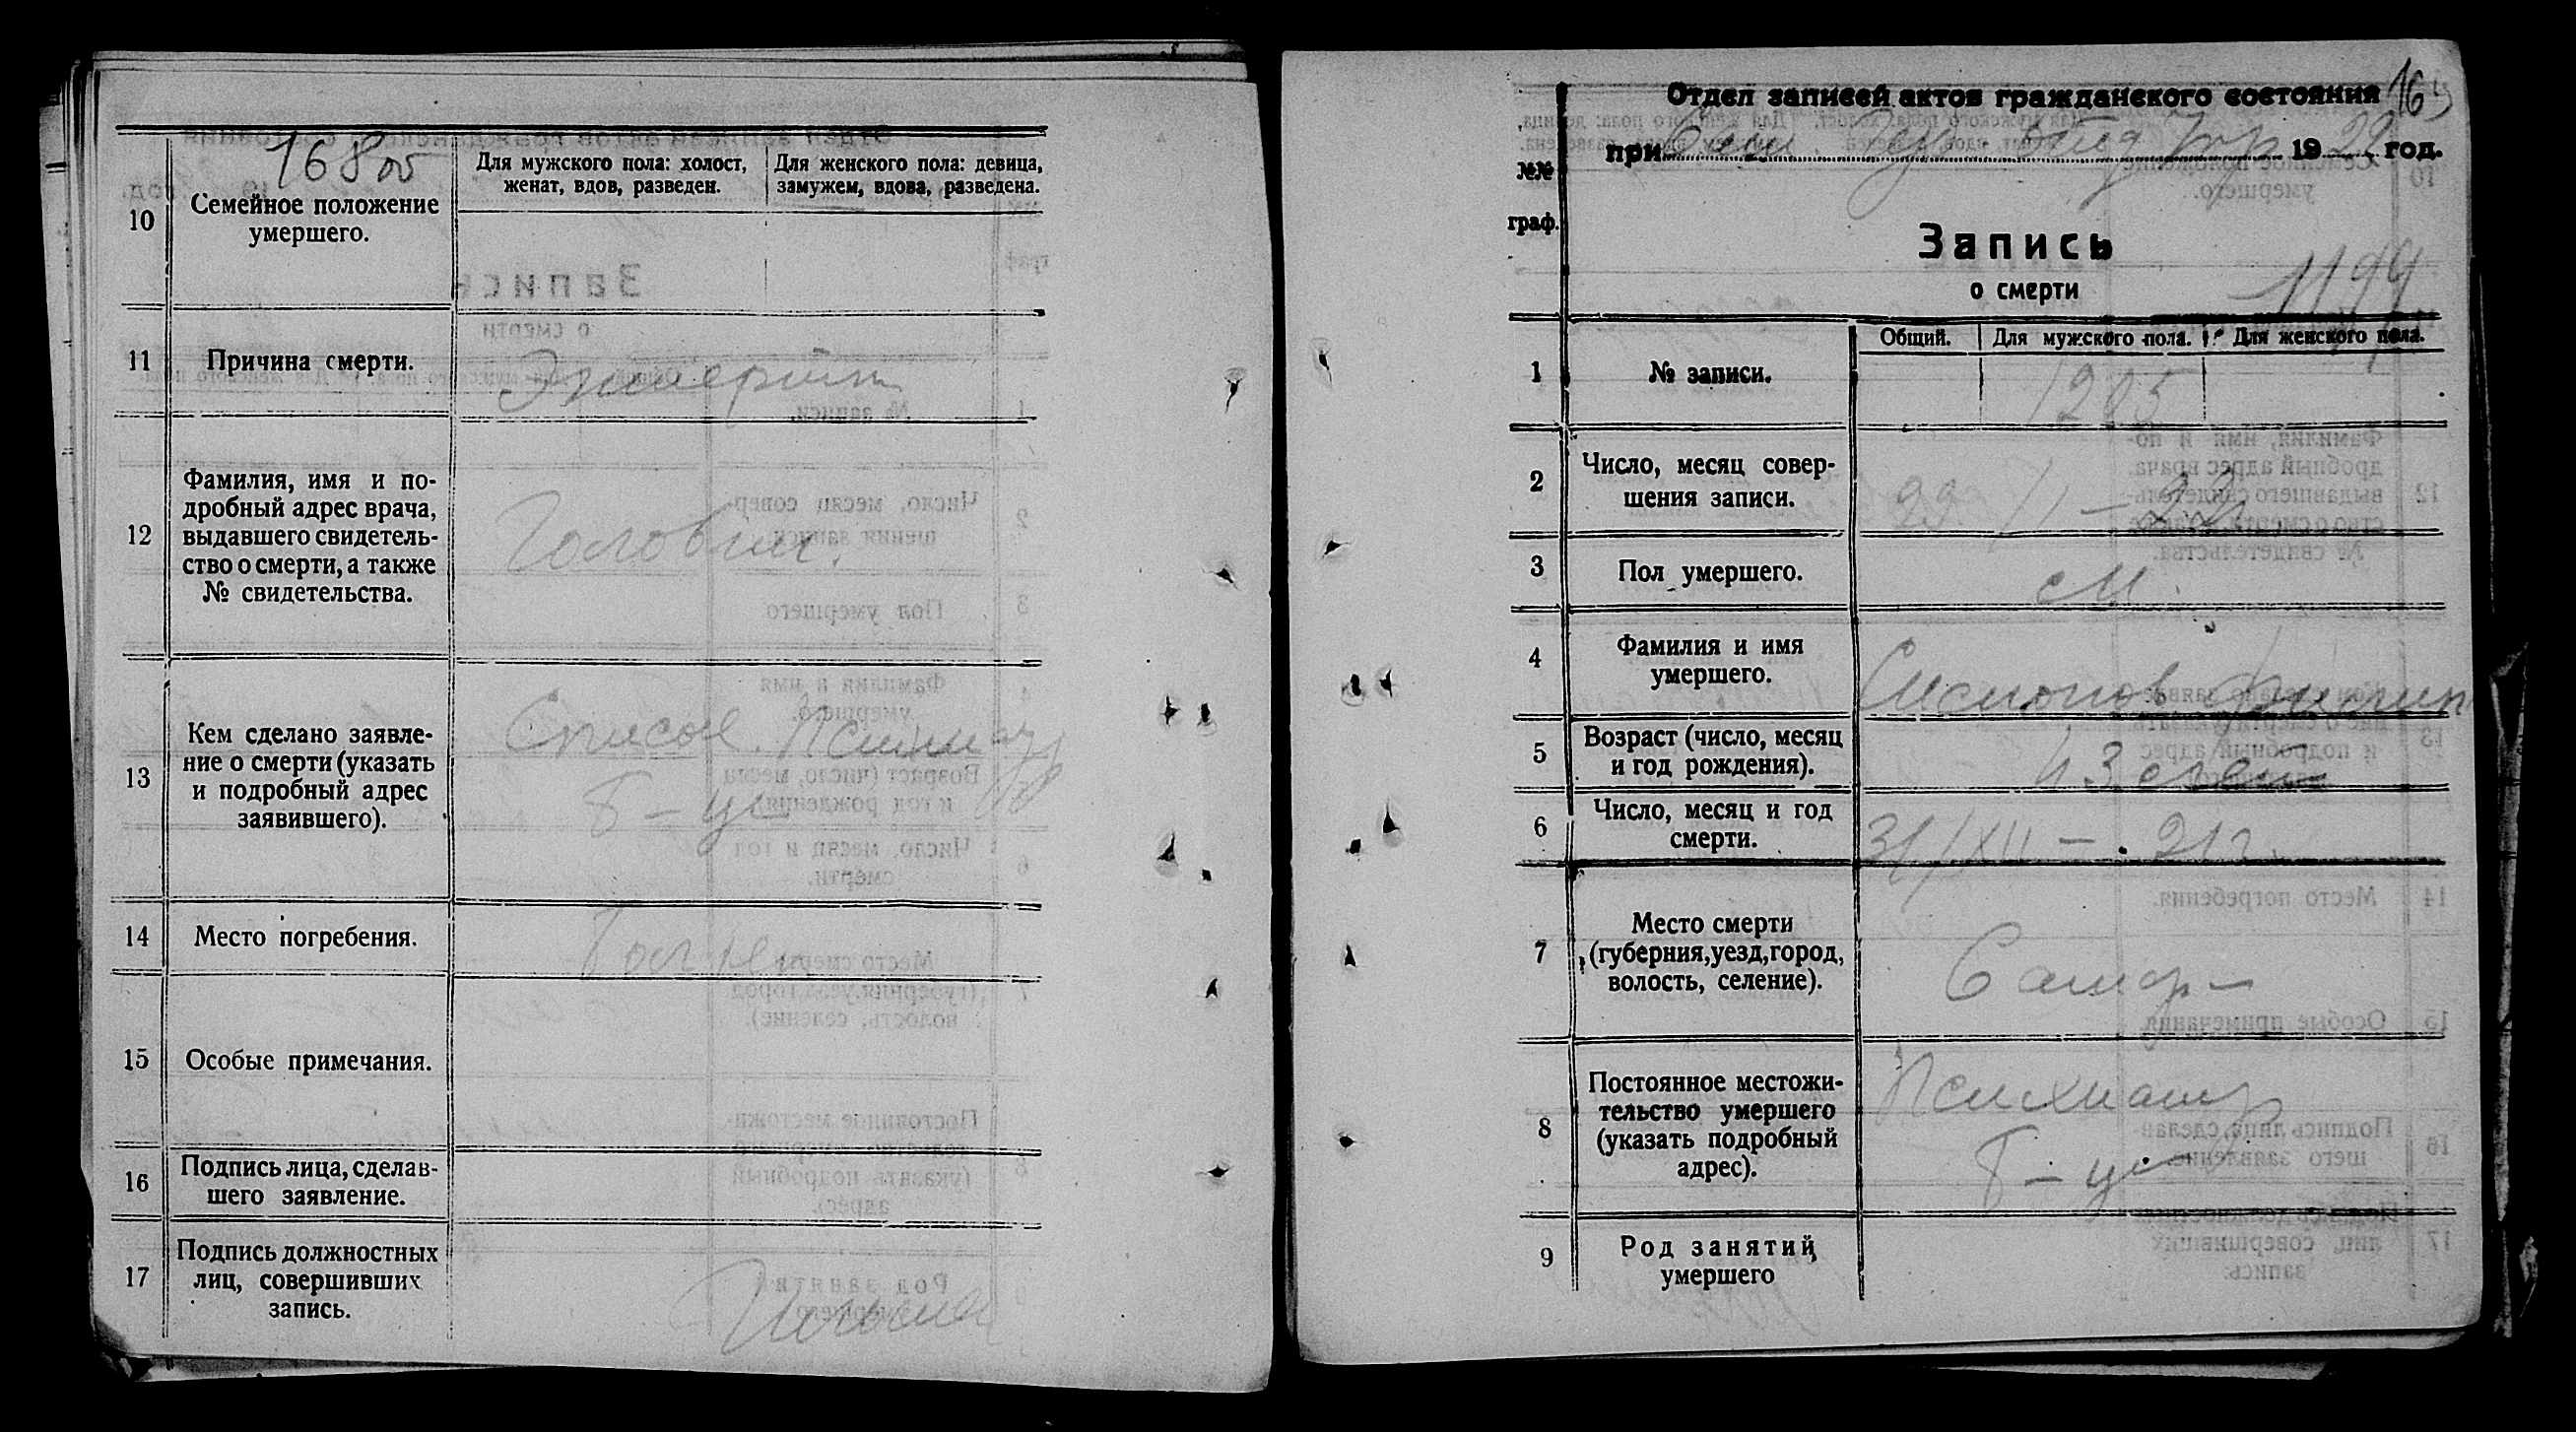 168об
10
Семейное положение
умершего.
Для мужского пола: холост,
женат, вдов, разведен.
Для женского пола: девица,
замужем, вдова, разведена.
11
Причина смерти.
Энтерит
12
Фамилия, имя и по-
дробный адрес врача,
выдавшего свидетель-
ство о смерти, а также
№ свидетельства.
Головин.
13
Кем сделано заявле-
ние о смерти (указать
и подробный адрес
заявившего).
Список. Психиатр
б-ца
14
Место погребения.
15
Особые примечания.
16
Подпись лица, сделав-
шего заявление.
17
Подпись должностных
лиц, совершивших
запись.
Отдел записей актов гражданского состояния
при 1922 год.
№№
граф.
Запись
о смерти
1194
1
№ записи.
Общий.
Для мужского пола.
Для женского пола.
1205
2
Число, месяц совер-
шения записи.
3
Пол умершего.
м.
4
Фамилия и имя
умершего.
Филипп
5
Возраст (число, месяц
и год рождения).
43 лет
6
Число, месяц и год
смерти.
31/XII – 21 г.
7
Место смерти
(губерния, уезд, город,
волость, селение).
Самар-
8
Постоянное местожи-
тельство умершего
(указать подробный
адрес).
Психиатр
б-ца
9
Род занятий
умершего